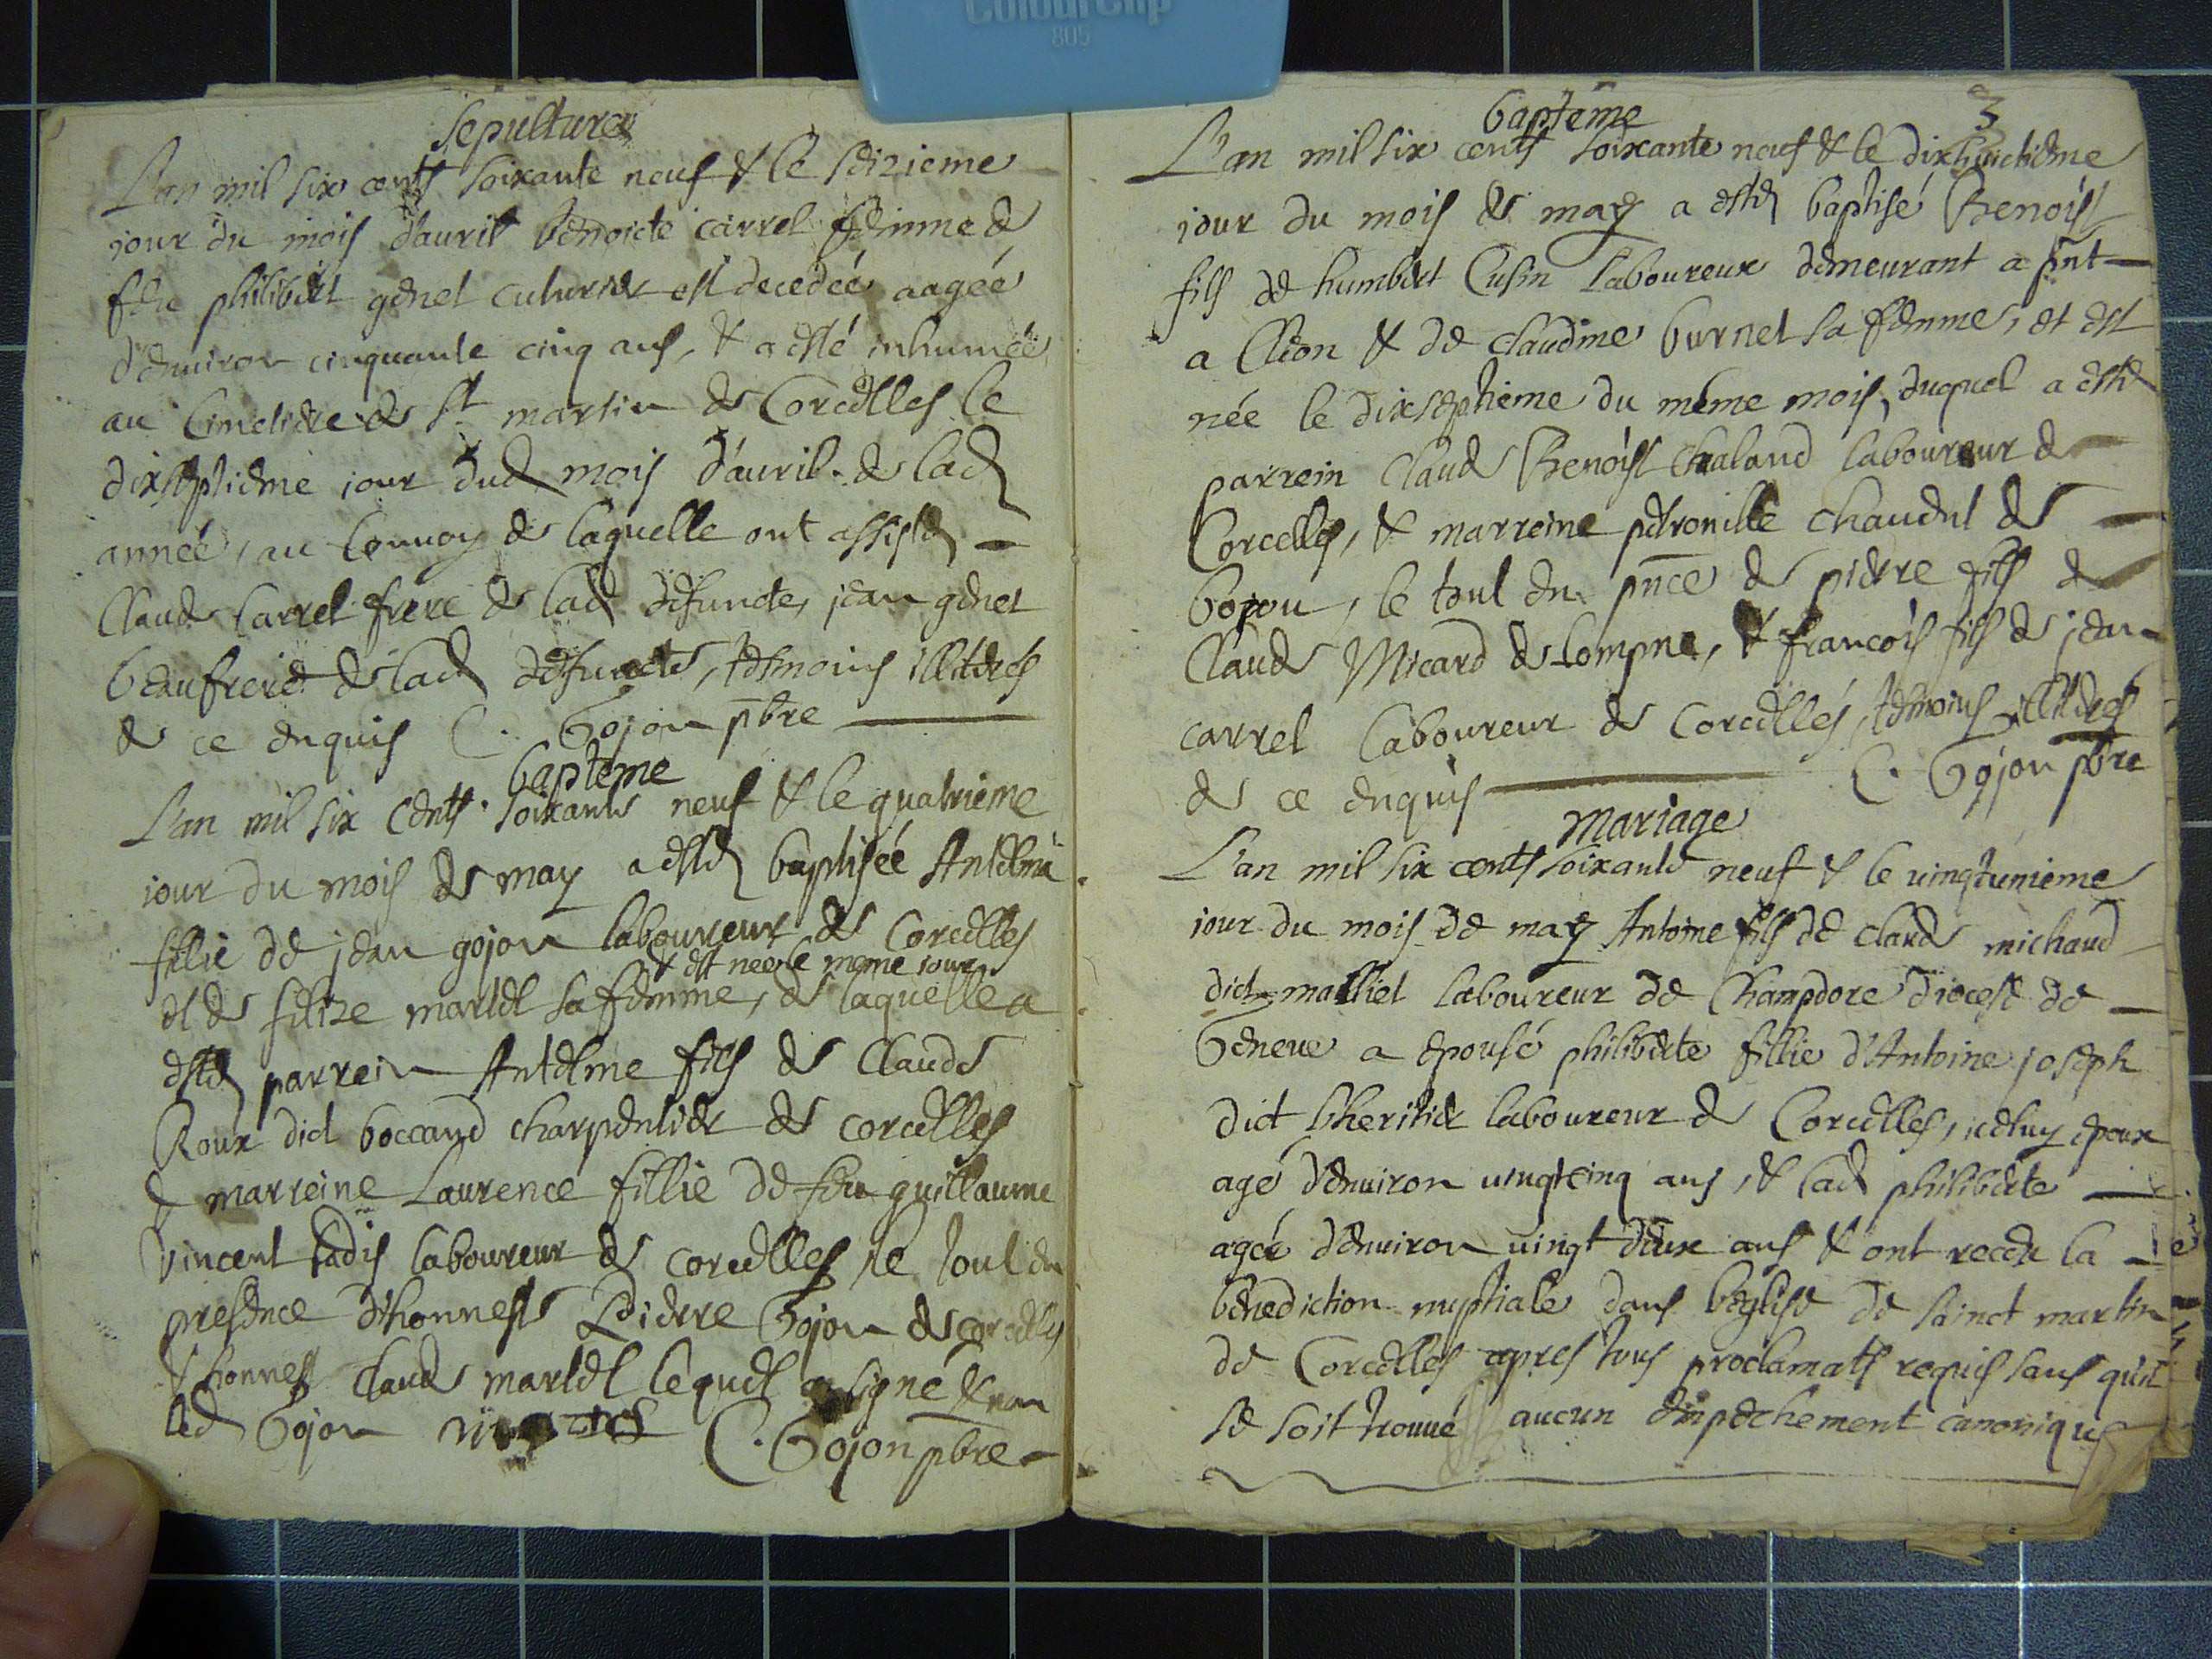 ColourClip
805
sepulture
L'an mil six cents soixante neuf & le seizieme
jour du mois d'auril benoicte carrel femme de
feu philibert genet cuturier est decedée aagée
d'enuiron cinquante cinq ans, & a esté inhumée
au Cimetiere de St martin de Corcelles le
dixseptieme jour dud mois d'auril de lad
année, au Conuoy de laquelle ont assisté
Claude Carrel frere de lad defuncte, jean genet
beaufrere de lad defuncte, temoins illiteres
de ce enquis C. Gojon pbre
bapteme
L'an mil six cents soixante neuf & le quatrieme
jour du mois de may a esté baptisée Antelma
fillie de jean gojon laboureur de Corcelles
& est née le meme jour
et de felize martel sa femme, de laquelle a
esté parrein Antelme fils de Claude
Roux dict boccand charpentier de corcelles
& marreine Laurence fillie de feu guillaume
vincent jadis laboureur de corcelles le tout en
presence d'honneste Pierre Gojon de corcelles
& honneste Claude martel lequel a signé & non
led Gojon C. Gojon pbre
3
bapteme
L'an mil six cents soixante neuf & le dixhuictieme
jour du mois de may a esté baptisé Benoist
fils de humbert Cusin Laboureur demeurant a pnt
a Cleon & de claudine burnet sa femme, et est
née le dixseptieme du même mois, duquel a esté
parrein Claude Benoist Chaland laboureur de
Corcelles, & marreine petronille chaudet de
bojou, le tout en pnce de pierre fils de
Claude Micard de lompne, & francois fils de jean
carrel laboureur de Corcelles, temoins illiteres
de ce enquis C. Gojon pbre
Mariage
L'an mil six cents soixante neuf & le uingtunieme
jour du mois de may Antoine fils de claude michaud
dict malliet laboureur de Champdore diocese de
Geneue a epousé philiberte fillie d'Antoine joseph
dict l'heritier laboureur de Corcelles, iceluy epoux
agé d'enuiron uingtcinq ans, & lad philiberte
agée d'enuiron uingt deux ans & ont receu la
benediction nuptiale dans l'eglise de sainct martin
de Corcelles apres tous proclamats requis sans qu'il
se soit trouué aucun empechement canonique